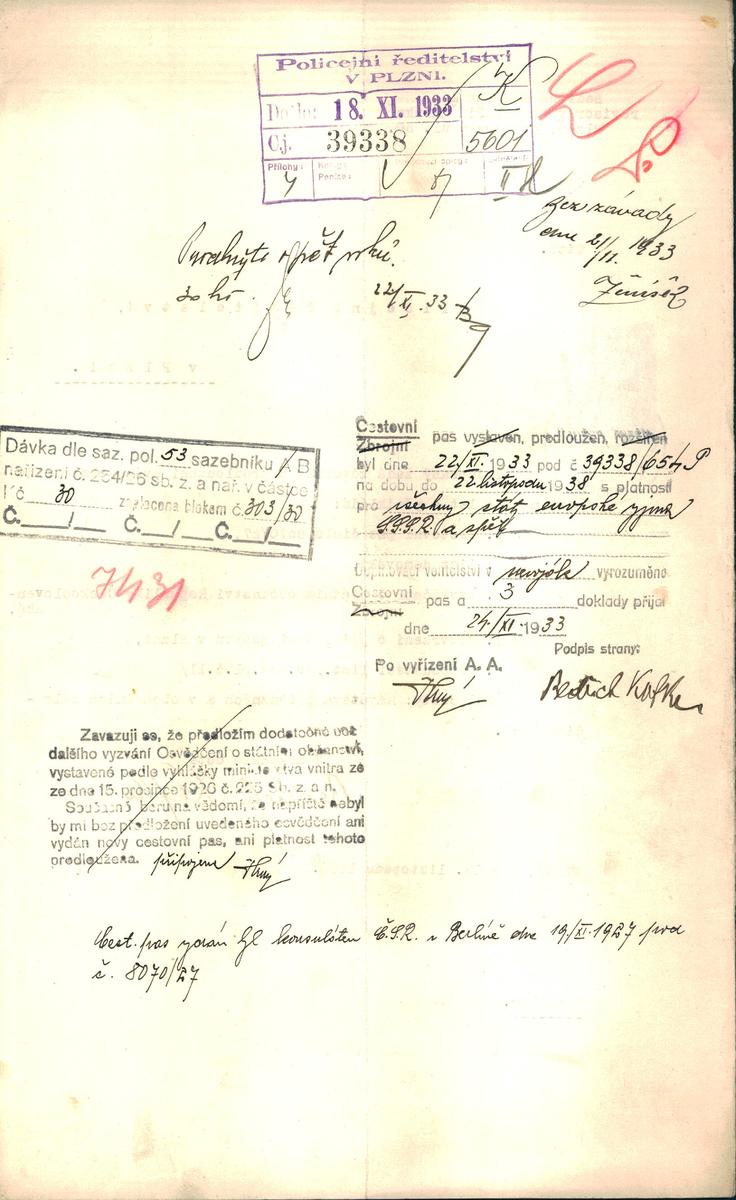 Policejní ředitelství
V PLZNI.
Došlo: 18. XI. 1933
K
Čj. 39338
5601
Přílohy: 4
Kolky:
Peníze:
II
Bez závady
dne 21/11. 1933
opět
22/XI. 33
Dávka dle saz. pol. 53 sazebníku A B
nařízení č. 254/26 sb. z. a nař. v částce
Kč 30 zaplacena blokem č. 303/30
Č. / Č. / Č. /
7431
Cestovní
Zbrojní pas vystaven, predloužen, rozšířen
byl dne 22/XI. 1933 pod č 39338/654 P
na dobu do 22. listopadu 1938 s platností
pro všechny státy evropské vyjma
S.S.S.R. a zpět
velitelství v vyrozuměno
Cestovní
Zbrojní pas a 3 doklady přijal
dne 24./XI. 1933
Podpis strany:
Po vyřízení A. A.
Bedřich Kafka
Zavazuji se, že předložím dodatečně bez
dalšího vyzvání Osvědčení o státním občanství,
vystavené podle vyhlášky ministerstva vnitra ze
ze dne 15. prosince 1926 č. 225 Sb. z. a n.
Současně beru na vědomí, že napříště nebyl
by mi bez předložení uvedeného osvědčení ani
vydán nový cestovní pas, ani platnost tohoto
predloužena. připojeno
Cest. pas vydán Gl konsulátem Č.S.R. v Berlíně dne 19/XI. 1927 pod
č. 8070/27